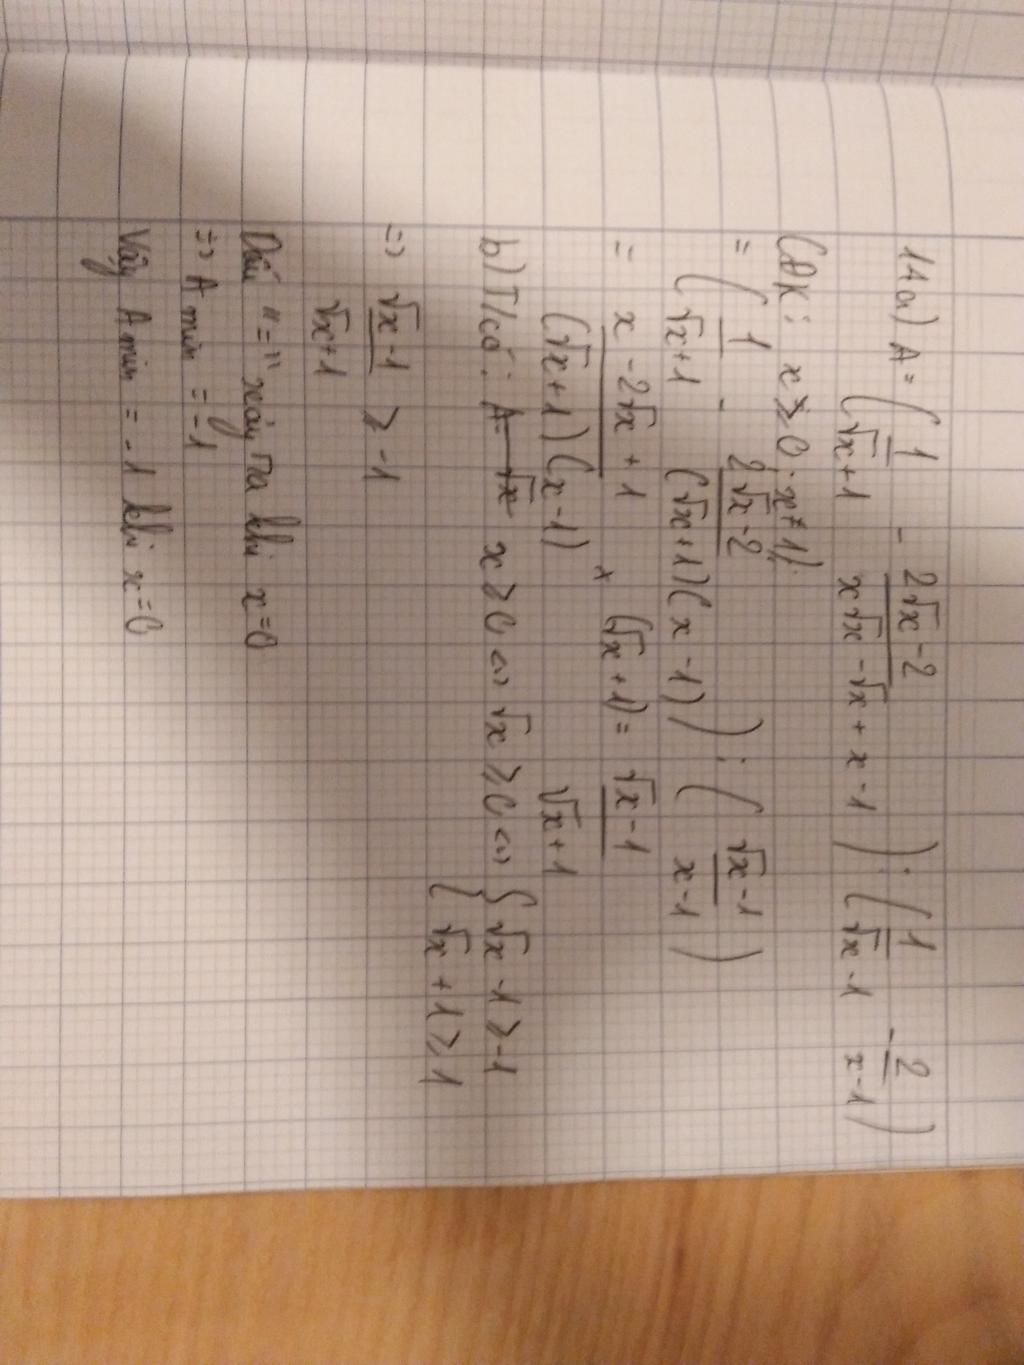 14a) A = ( 1/(√x+1) - (2√x-2)/(x√x-√x+x-1) ) : ( 1/(√x-1) - 2/(x-1) )
CĐK: x ≥ 0; x ≠ 1);
= ( 1/(√x+1) - (2√x-2)/((√x+1)(x-1)) ) : ( (√x-1)/(x-1) )
= (x-2√x+1)/((√x+1)(x-1)) × (√x+1) = (√x-1)/(√x+1)
b) T/có: x ≥ 0 <=> √x ≥ 0 <=> { √x-1 ≥ -1
{ √x+1 ≥ 1
=> (√x-1)/(√x+1) ≥ -1
Dấu "=" xảy ra khi x=0
=> A min = -1
Vậy A min = -1 khi x=0